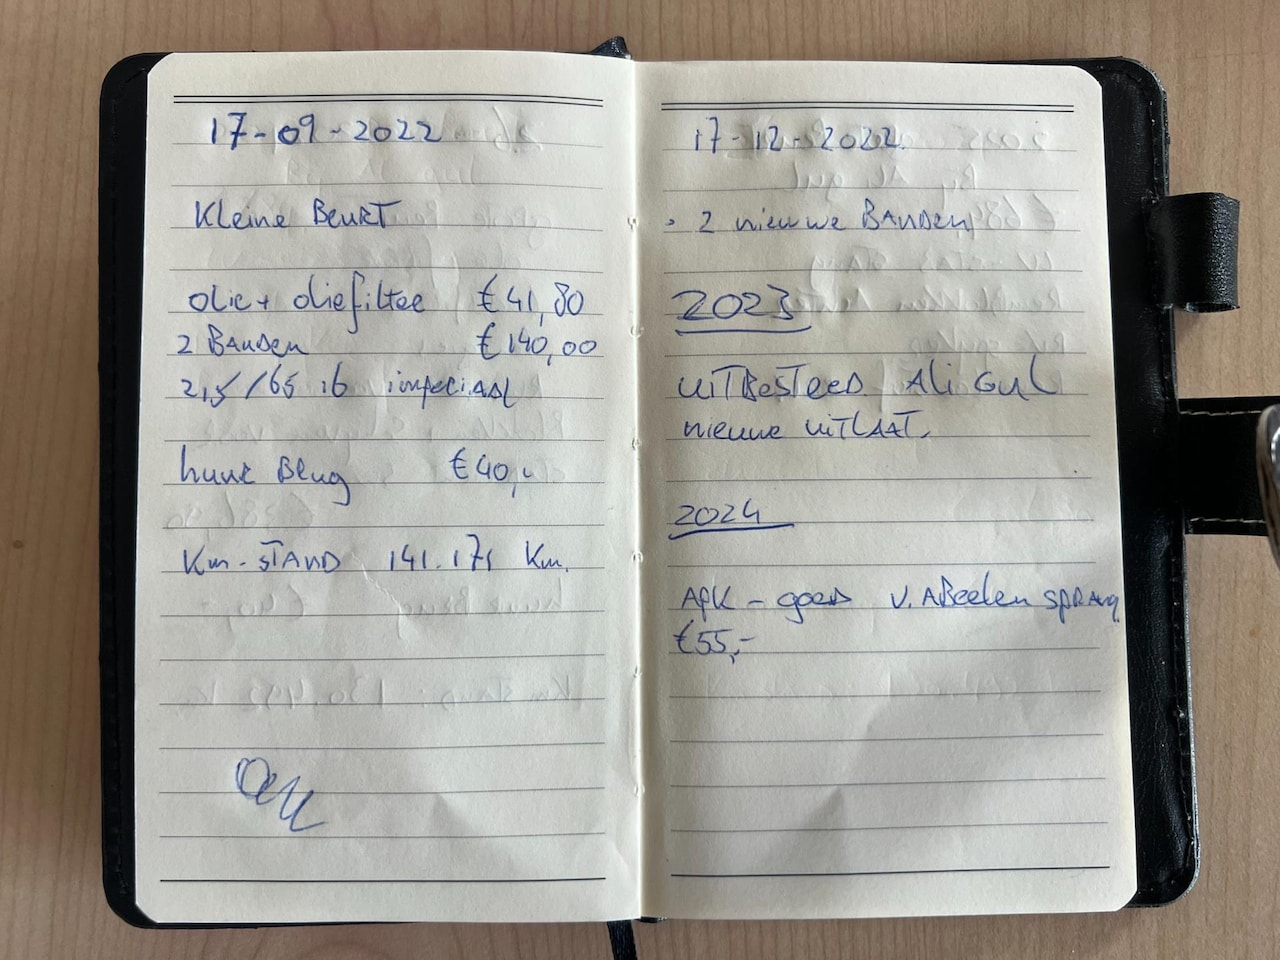 17-09-2022
Kleine Beurt
olie + oliefilter € 41,80
2 Banden € 140,00
215/65 16 imperiaal
huur Brug € 40,-
Km-stand 141.171 Km.
17-12-2022.
2 nieuwe Banden
2023
uitbesteed Ali Gul
nieuwe uitlaat.
2024
APK - goed v. Abeelen Sprang
€55,-